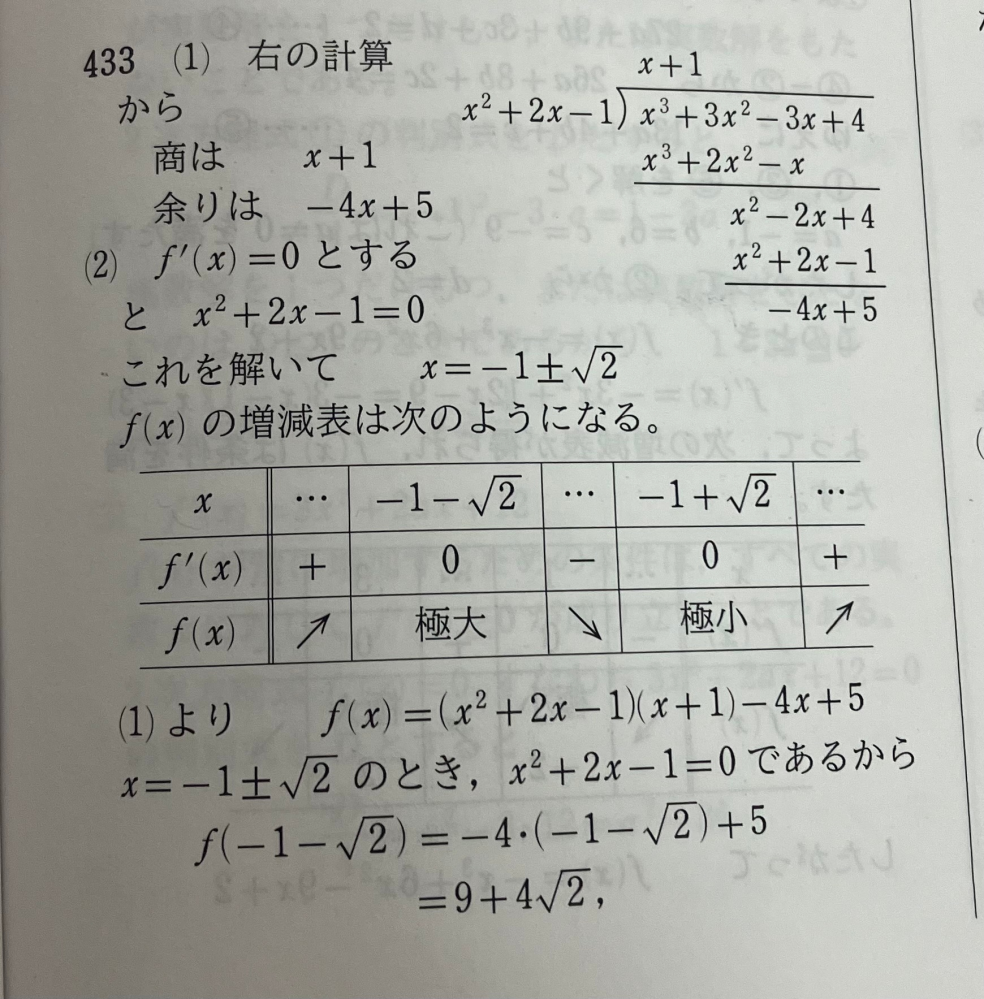 433 (1) 右の計算
から
商は x+1
余りは −4x+5
x+1
x²+2x−1)x³+3x²−3x+4
x³+2x²−x
x²−2x+4
x²+2x−1
−4x+5
(2) f′(x)=0 とする
と x²+2x−1=0
これを解いて x=−1±√2
f(x) の増減表は次のようになる。
x … −1−√2 … −1+√2 …
f′(x) + 0 − 0 +
f(x) ↗ 極大 ↘ 極小 ↗
(1)より f(x)=(x²+2x−1)(x+1)−4x+5
x=−1±√2 のとき，x²+2x−1=0 であるから
f(−1−√2)=−4·(−1−√2)+5
=9+4√2，